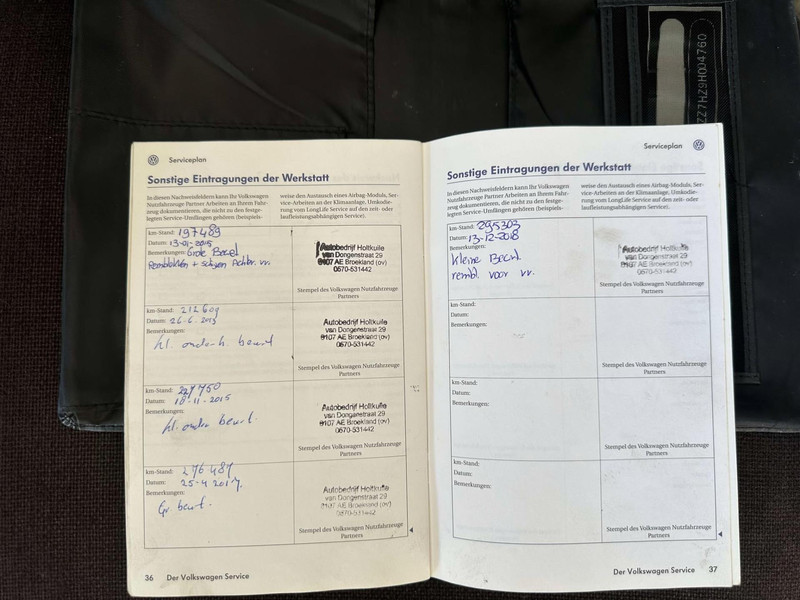 ZZ7HZ9H004760
Serviceplan
Sonstige Eintragungen der Werkstatt
In diesen Nachweisfeldern kann Ihr Volkswagen
Nutzfahrzeuge Partner Arbeiten an Ihrem Fahr-
zeug dokumentieren, die nicht zu den festge-
legten Service-Umfängen gehören (beispiels-
weise den Austausch eines Airbag-Moduls, Ser-
vice-Arbeiten an der Klimaanlage, Umkodie-
rung vom LongLife Service auf den zeit- oder
laufleistungsabhängigen Service).
km-Stand: 197489
Datum: 13-01-2015
Bemerkungen: Grote Beurt
Remblokken + schijven Achter vv.
Autobedrijf Holtkuile
van Dongenstraat 29
8107 AE Broekland (ov)
0570-531442
Stempel des Volkswagen Nutzfahrzeuge
Partners
km-Stand: 212609
Datum: 26-6-2015
Bemerkungen:
kl. onderh. beurt
Autobedrijf Holtkuile
van Dongenstraat 29
8107 AE Broekland (ov)
0570-531442
Stempel des Volkswagen Nutzfahrzeuge
Partners
km-Stand: 227750
Datum: 18-11-2015
Bemerkungen:
kl. onder beurt.
Autobedrijf Holtkuile
van Dongenstraat 29
8107 AE Broekland (ov)
0570-531442
Stempel des Volkswagen Nutzfahrzeuge
Partners
km-Stand: 276487
Datum: 25-4 2017.
Bemerkungen:
Gr beurt.
Autobedrijf Holtkuile
van Dongenstraat 29
8107 AE Broekland (ov)
0570-531442
Stempel des Volkswagen Nutzfahrzeuge
Partners
36 Der Volkswagen Service
Serviceplan
Sonstige Eintragungen der Werkstatt
In diesen Nachweisfeldern kann Ihr Volkswagen
Nutzfahrzeuge Partner Arbeiten an Ihrem Fahr-
zeug dokumentieren, die nicht zu den festge-
legten Service-Umfängen gehören (beispiels-
weise den Austausch eines Airbag-Moduls, Ser-
vice-Arbeiten an der Klimaanlage, Umkodie-
rung vom LongLife Service auf den zeit- oder
laufleistungsabhängigen Service).
km-Stand: 295303
Datum: 13-12-2018
Bemerkungen:
Kleine Beurt
rembl. voor vv.
Autobedrijf Holtkuile
van Dongenstraat 29
8107 AE Broekland (ov)
0570-531442
Stempel des Volkswagen Nutzfahrzeuge
Partners
km-Stand:
Datum:
Bemerkungen:
Stempel des Volkswagen Nutzfahrzeuge
Partners
km-Stand:
Datum:
Bemerkungen:
Stempel des Volkswagen Nutzfahrzeuge
Partners
km-Stand:
Datum:
Bemerkungen:
Stempel des Volkswagen Nutzfahrzeuge
Partners
Der Volkswagen Service 37